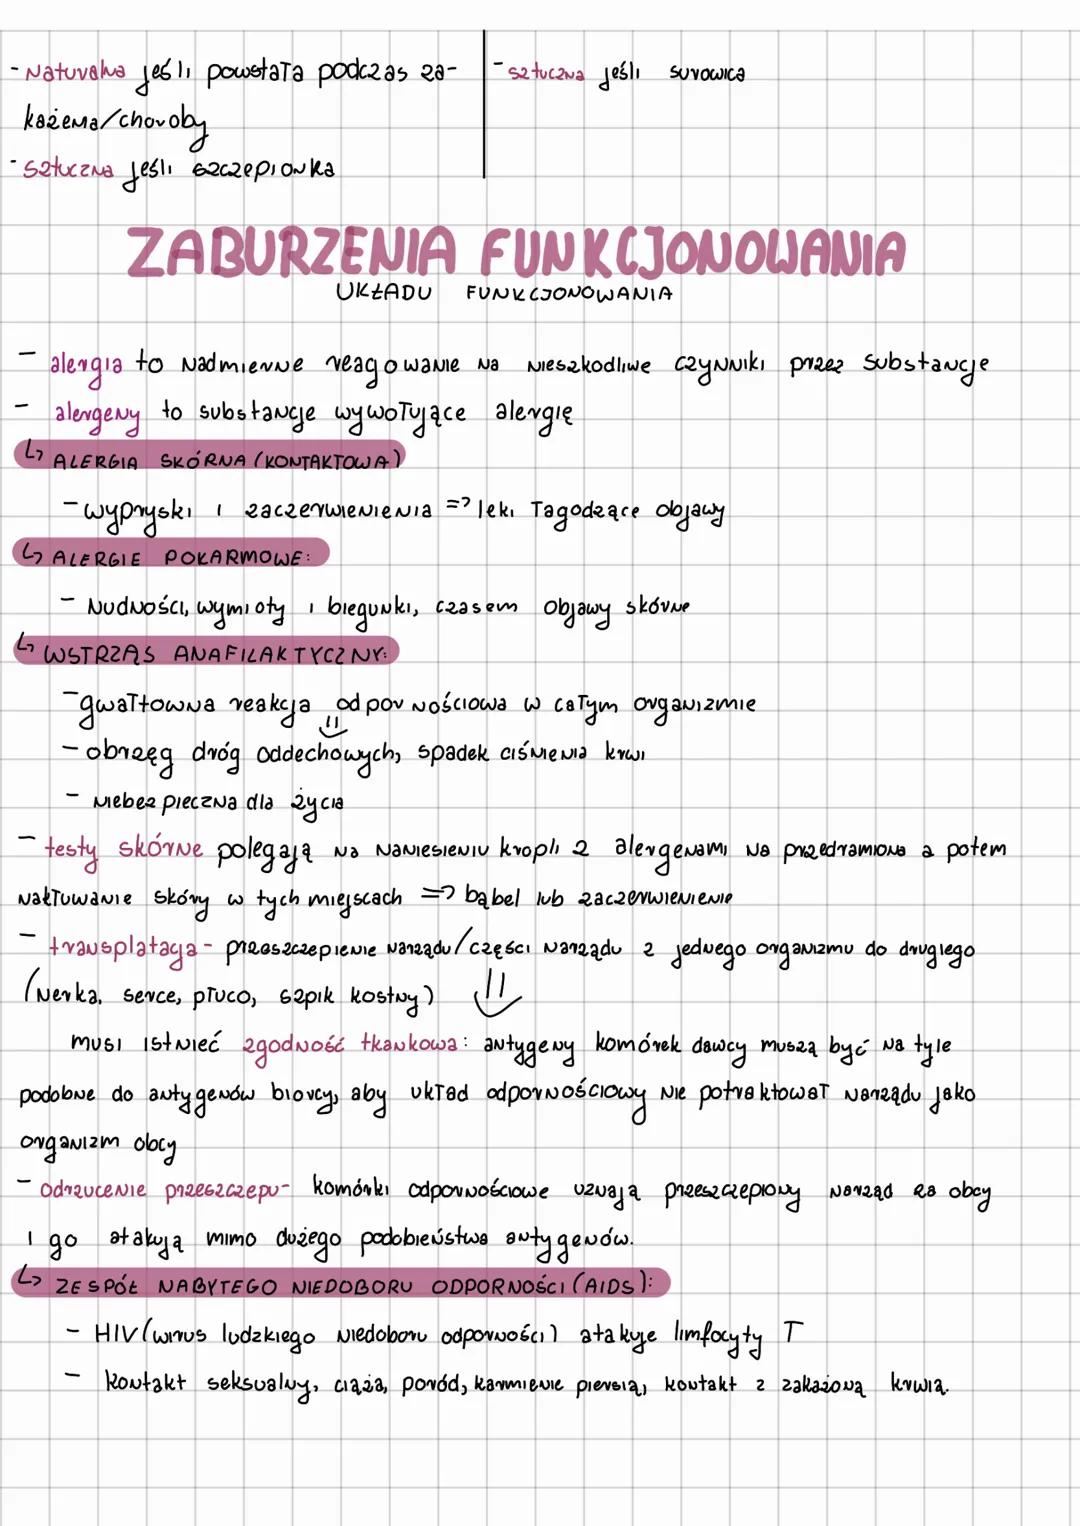 - Naturalna jeśli powstała podczas za-
każenia/choroby
- sztuczna jeśli szczepionka
- sztuczna jeśli surowica
ZABURZENIA FUNKCJONOWANIA
UKŁADU FUNKCJONOWANIA
- alergia to nadmierne reagowanie na nieszkodliwe czynniki przez substancje
- alergeny to substancje wywołujące alergię
↳ ALERGIA SKÓRNA (KONTAKTOWA)
- wypryski i zaczerwienienia => leki łagodzące objawy
↳ ALERGIE POKARMOWE:
- Nudności, wymioty i biegunki, czasem objawy skórne
↳ WSTRZĄS ANAFILAKTYCZNY:
- gwałtowna reakcja odpornościowa w całym organizmie
- obrzęg dróg oddechowych, spadek ciśnienia krwi
- niebezpieczna dla życia
- testy skórne polegają na naniesieniu kropli z alergenami na przedramiona a potem
nakłuwanie skóry w tych miejscach => bąbel lub zaczerwienienie
- transplatacja - przeszczepienie narządu/części narządu z jednego organizmu do drugiego
(nerka, serce, płuco, szpik kostny)
musi istnieć zgodność tkankowa: antygeny komórek dawcy muszą być na tyle
podobne do antygenów biorcy, aby układ odpornościowy nie potraktował narządu jako
organizm obcy
- odrzucenie przeszczepu - komórki odpornościowe uznają przeszczepiony narząd za obcy
i go atakują mimo dużego podobieństwa antygenów.
↳ ZESPÓŁ NABYTEGO NIEDOBORU ODPORNOŚCI (AIDS):
- HIV (wirus ludzkiego niedoboru odporności) atakuje limfocyty T
- kontakt seksualny, ciąża, poród, karmienie piersią, kontakt z zakażoną krwią.